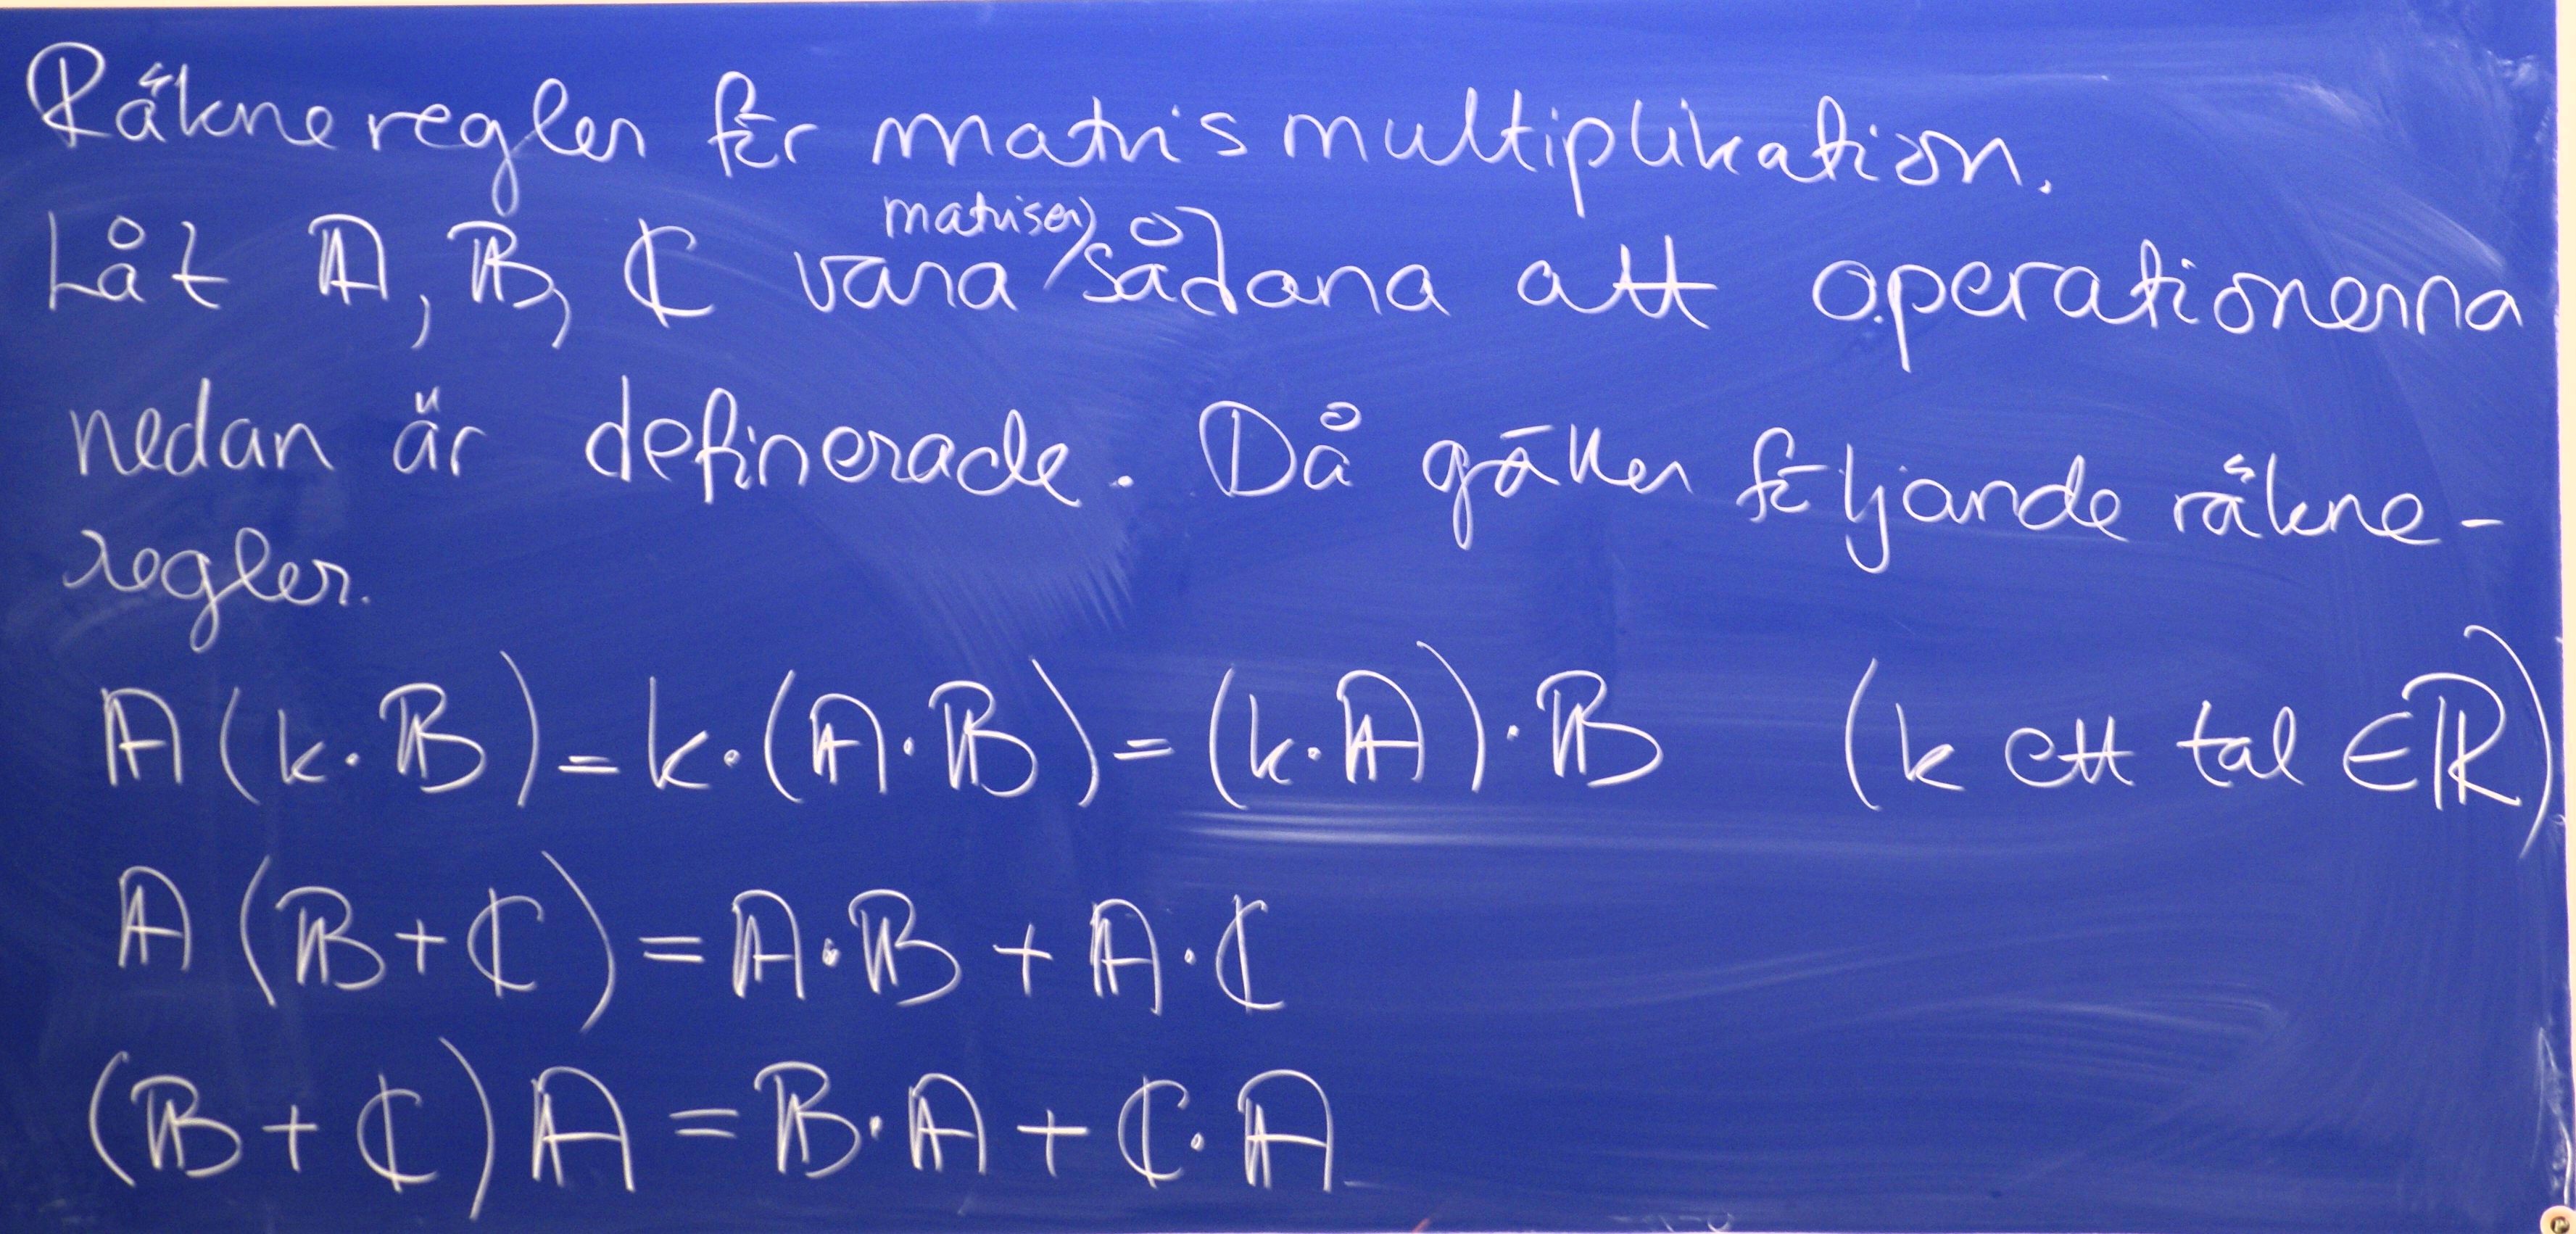 Räkneregler för matrismultiplikation.
Låt 𝔸, 𝔹, ℂ vara matriser sådana att operationerna
nedan är definerade. Då gäller följande räkne-
regler.
𝔸(k·𝔹) = k·(𝔸·𝔹) = (k·𝔸)·𝔹 (k ett tal ∈ℝ)
𝔸(𝔹+ℂ) = 𝔸·𝔹 + 𝔸·ℂ
(𝔹+ℂ)𝔸 = 𝔹·𝔸 + ℂ·𝔸